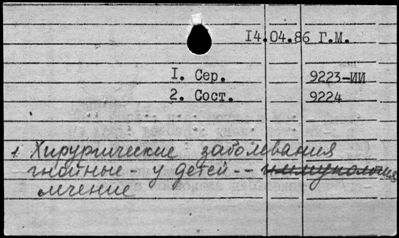 14.04.86 Г.М.
I. Сер. 9223-ИИ
2. Сост. 9224
1 Хирургические заболевания
гнойные - у детей -- иммунология
лечение